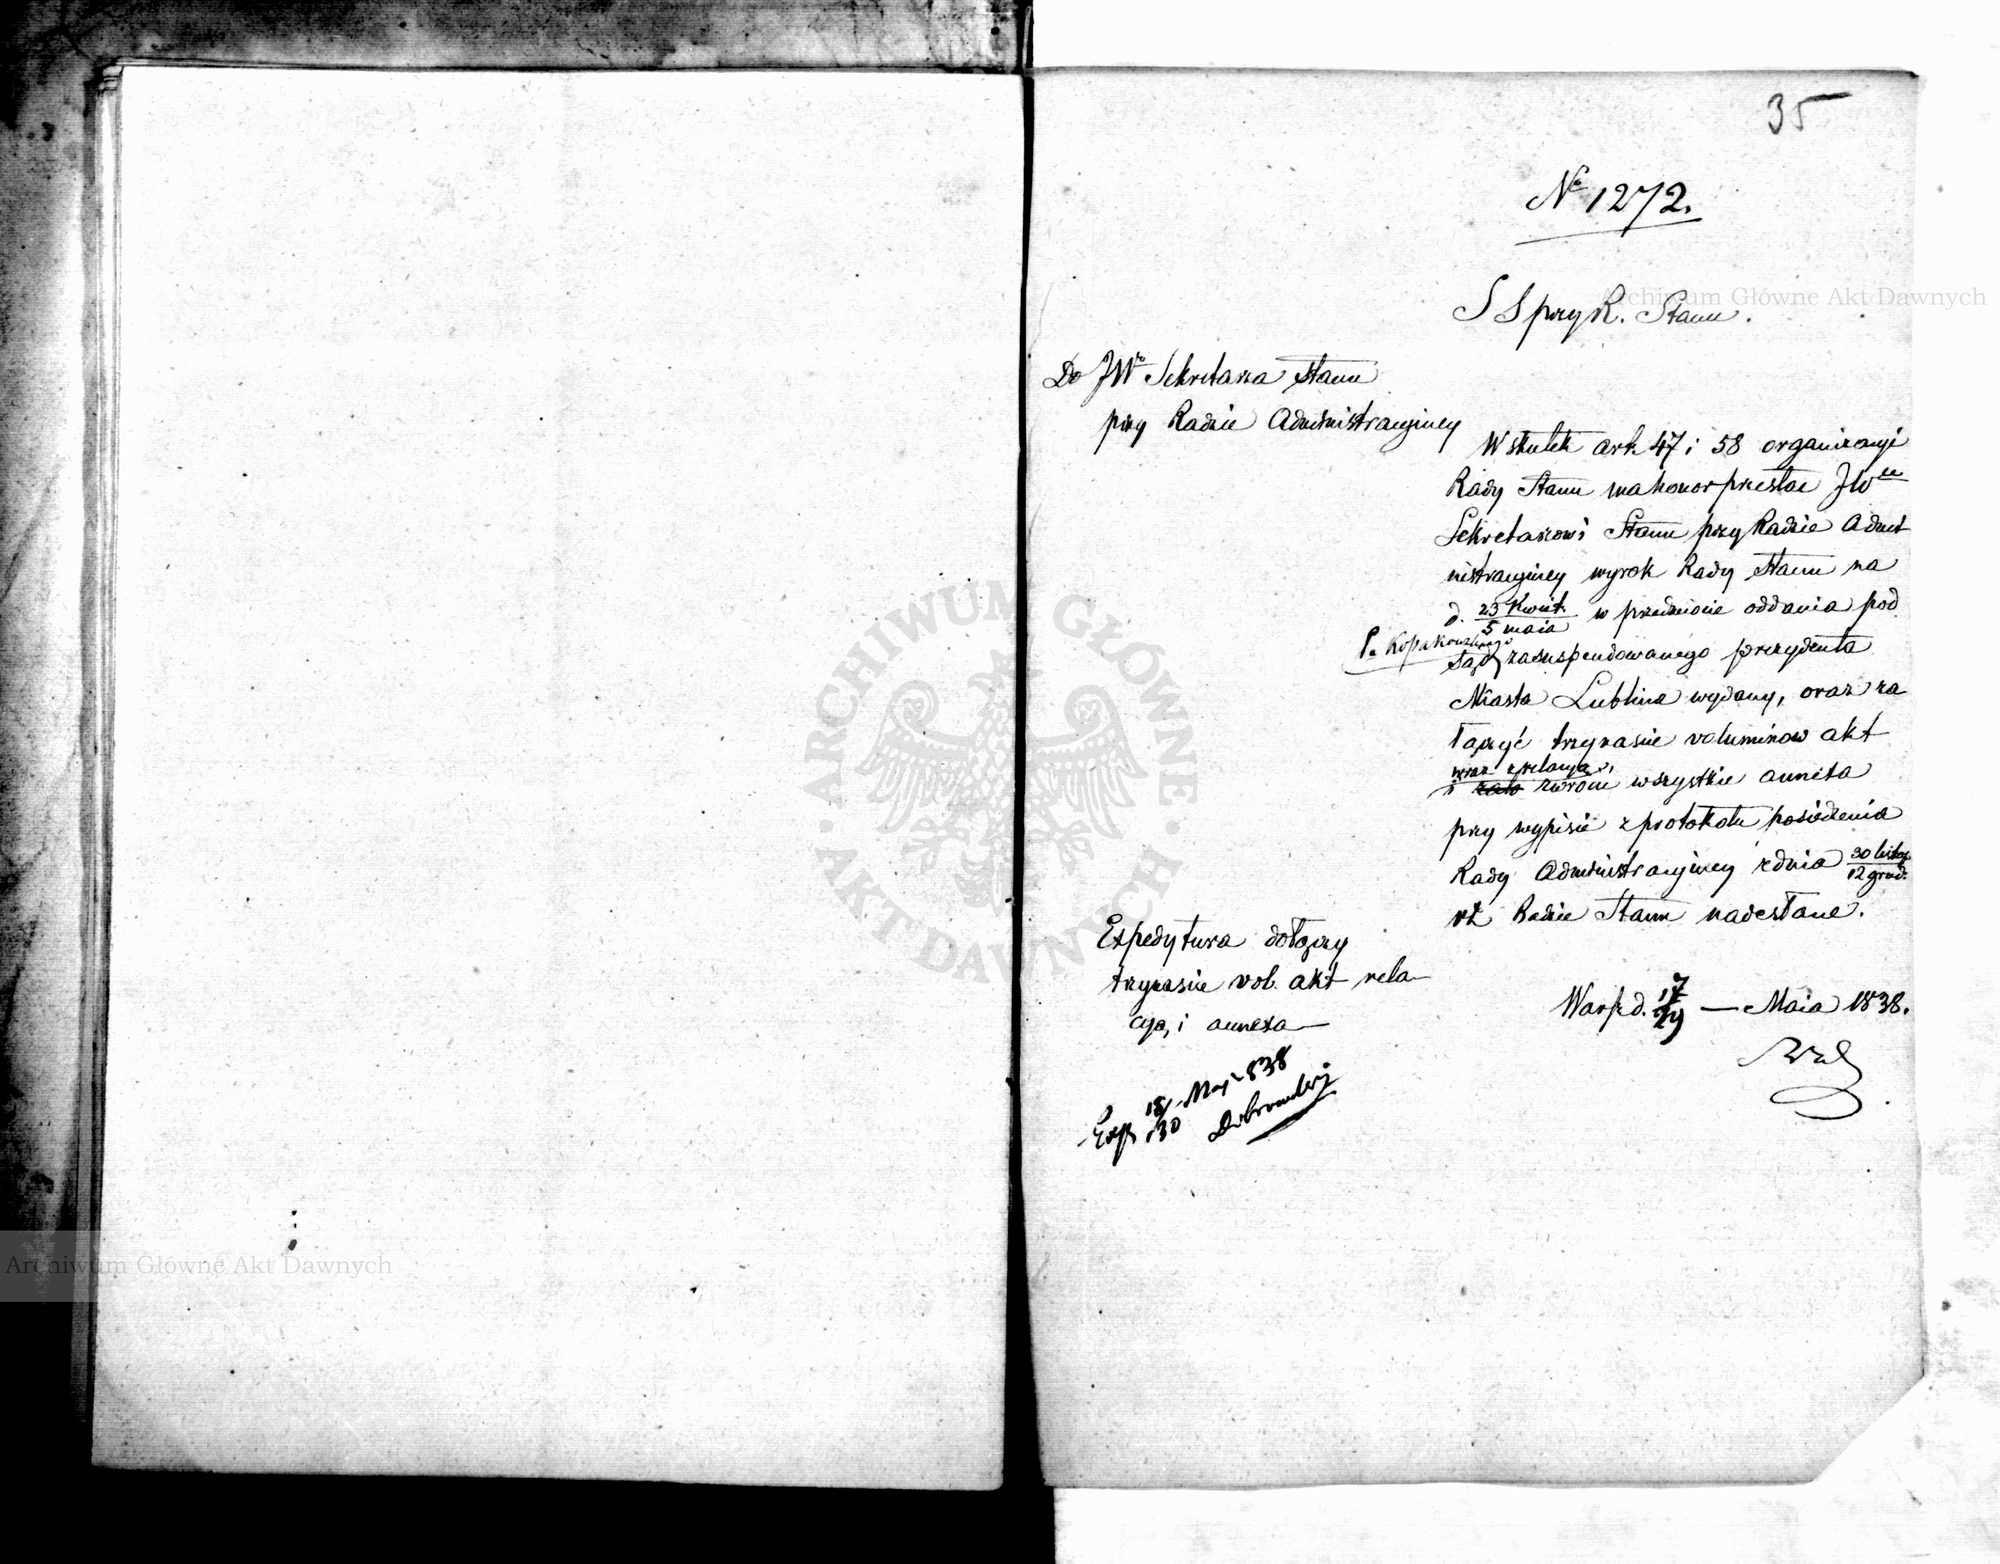 35
No 1272.
S S przy R. Stanu.
Do JWo Sekretarza Stanu
przy Radzie Administracyiney
W skutek art. 47 i 58 organizacyi
Rady Stanu ma honor przesłać JWmu
Sekretarzowi Stanu przy Radzie Admi
nistracyiney wyrok Rady Stanu na
d. 23 Kwiet. / 5 maia w przedmiocie oddania pod
sąd P. zasuspendowanego prezydenta
Miasta Lublina wydany, oraz za
łączyć trzynaście voluminow akt
wraz z relacyą,
i zwrócić wszystkie annexa
przy wypisie z protokołu posiedzenia
Rady Administracyiney z dnia 30 listop. / 12 grud.
Radzie Stanu nadesłane.
Expedytura dołączy
trzynaście vol. akt rela
cyą, i annexa
Wars. d. 17 / 29 — Maia 1838.
Exp. 18/30 Maj 838
Archiwum Główne Akt Dawnych
ARCHIWUM GŁÓWNE AKT DAWNYCH
Archiwum Główne Akt Dawnych